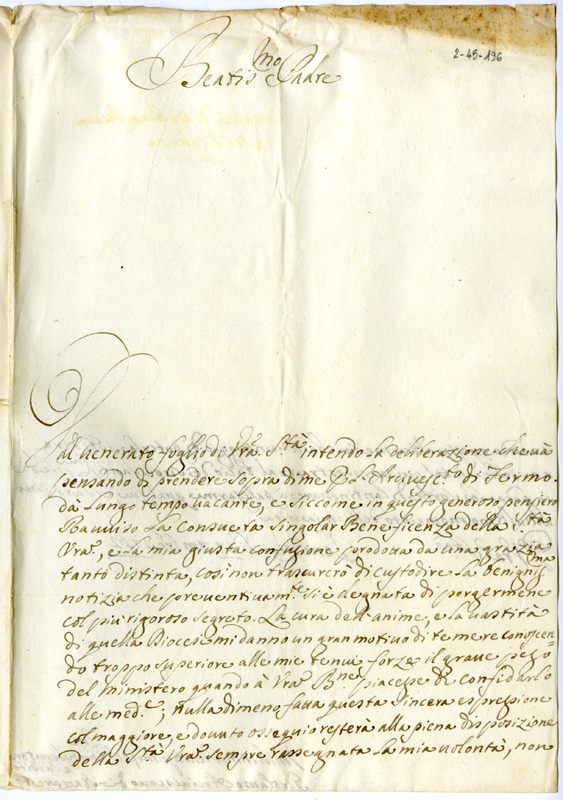 2-45-196
Beatis.mo Padre
Dal venerato foglio di Vra. S.tà intendo la deliberazione che và
pensando di prendere sopra di me p. L'Arcivesc.to di Fermo
dà lungo tempo vacante, e siccome in questo generoso pensiero
Ravviso La Consueta Singolar Beneficenza della S.tà
Vra., e la mia giusta confusione prodotta da una grazia
tanto distinta, così non trascurerò di custodire la benignis.ma
notizia che preventivam.te si è degnata di porgermene
col più rigoroso segreto. La cura dell'anime, e la vastità
di quella Diocesi mi danno un gran motivo di temere conoscen-
do troppo superiore alle mie tenui forze il grave pezo
del Ministero quando à Vra. B.ne piacesse di confidarlo
alle med.e; nulladimeno fatta questa sincera espressione
col maggiore, e dovuto ossequio resterà alla piena disposizione
della S.tà Vra. sempre rassegnata la mia volontà, non